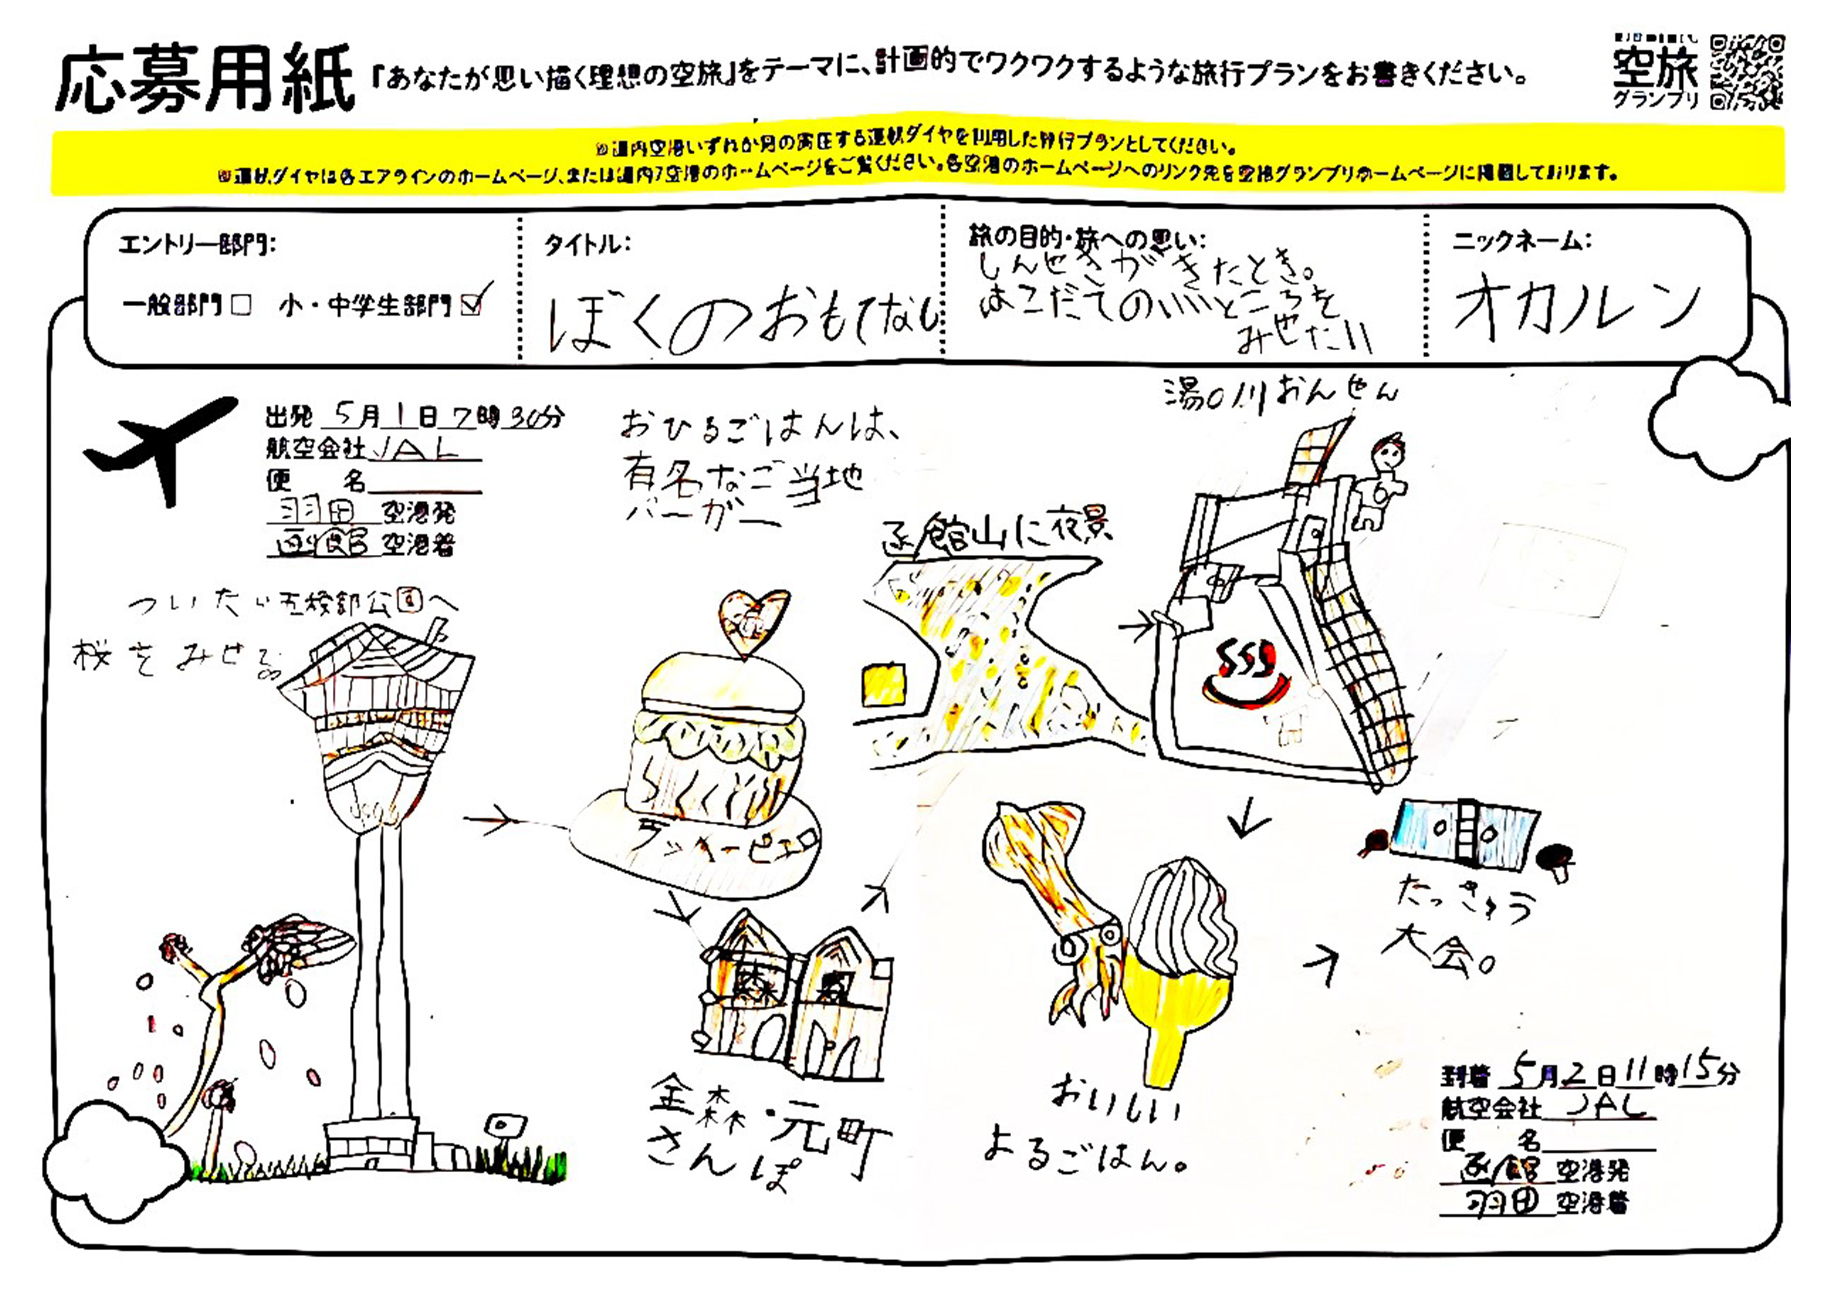 応募用紙
『あなたが思い描く理想の空旅』をテーマに、計画的でワクワクするような旅行プランをお書きください。
空旅
グランプリ
※道内空港いずれか発の実在する運航ダイヤを利用した旅行プランとしてください。
※運航ダイヤは各エアラインのホームページ、または道内7空港のホームページをご覧ください。各空港のホームページへのリンク先を空旅グランプリホームページに掲載しております。
エントリー部門:
一般部門□ 小・中学生部門☑
タイトル:
ぼくのおもてなし
旅の目的・旅への思い:
しんせきがきたとき。
はこだてのいいところを
みせたい
ニックネーム:
オカルン
出発 5月1日7時30分
航空会社 JAL
便 名
羽田 空港発
函館 空港着
ついたら五稜郭公園へ
桜をみせる。
おひるごはんは、
有名なご当地
バーガー
ラッキーピエロ
金森・元町
さんぽ
函館山に夜景
湯の川おんせん
おいしい
よるごはん。
たっきゅう
大会。
到着 5月2日11時15分
航空会社 JAL
便 名
函館 空港発
羽田 空港着